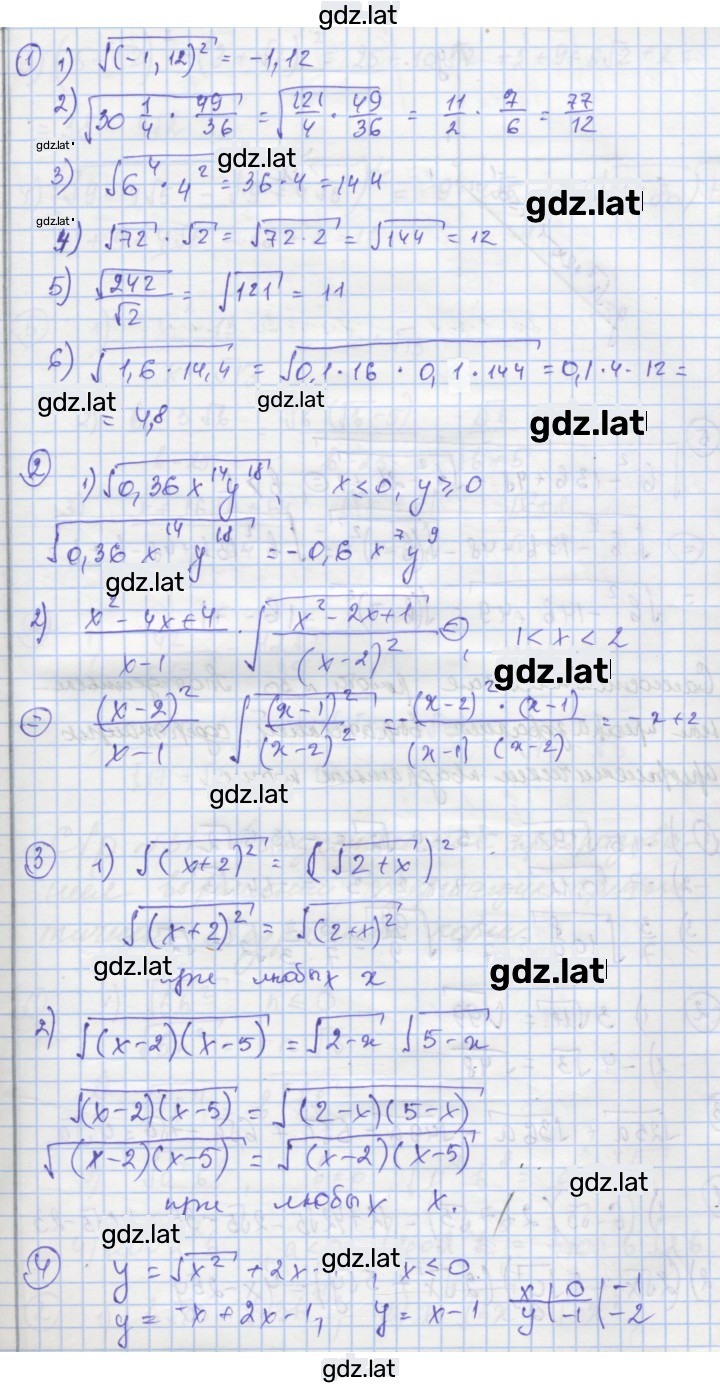 gdz.lat
① 1) √(-1,12)² = -1,12
2) √30 1/4 · 49/36 = √121/4 · 49/36 = 11/2 · 7/6 = 77/12
gdz.lat
gdz.lat
3) √6⁴ · 4² = 36 · 4 = 144
gdz.lat
gdz.lat
4) √72 · √2 = √72 · 2 = √144 = 12
5) √242/√2 = √121 = 11
6) √1,6 · 14,4 = √0,1 · 16 · 0,1 · 144 = 0,1 · 4 · 12 =
gdz.lat gdz.lat
= 4,8
gdz.lat
② 1) √0,36 x¹⁴ y¹⁸, x ≤ 0, y ≥ 0
√0,36 x¹⁴ y¹⁸ = -0,6 x⁷ y⁹
gdz.lat
2) x² - 4x + 4/x - 1 · √x² - 2x + 1/(x - 2)² ⊜, 1 < x < 2
gdz.lat
⊜ (x - 2)²/x - 1 √(x - 1)²/(x - 2)² = -(x - 2)² · (x - 1)/(x - 1) (x - 2) = -x + 2
gdz.lat
③ 1) √(x + 2)² = (√2 + x)²
√(x + 2)² = √(2 + x)²
gdz.lat gdz.lat
при любых x
2) √(x - 2)(x - 5) = √2 - x √5 - x
√(x - 2)(x - 5) = √(2 - x)(5 - x)
√(x - 2)(x - 5) = √(x - 2)(x - 5)
gdz.lat
при любых x.
gdz.lat
④ y = √x² + 2x , x ≤ 0
gdz.lat
y = -x + 2x - 1, y = x - 1 x | 0 | -1
y | -1 | -2
gdz.lat